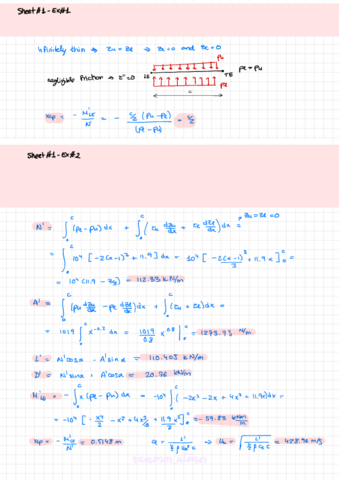 Sheet #1 - Ex#1
infinitely thin → zu = zl ⇒ zu=0 and zl=0
pu
negligible friction → τ=0
LE
TE
pl > pu
pl
c
xcp = - M'LE / N' = - c²/2 (pu - pl) / (pl - pu) = c/2
Sheet #1 - Ex#2
zu = zl = 0
N' = ∫₀ᶜ (pl - pu) dx + ∫₀ᶜ (τu dzu/dx + τl dzl/dx) dx =
= ∫₀ᶜ 10⁴ [-2(x-1)² + 11.9] dx = 10⁴ [-2(x-1)³/3 + 11.9 x]₀ᶜ =
= 10⁴ (11.9 - 2/3) = 112.33 kN/m
A' = ∫₀ᶜ (pu dzu/dx - pl dzl/dx) dx + ∫₀ᶜ (τu + τl) dx =
= 1019 ∫₀ᶜ x^-0.2 dx = 1019/0.8 x^0.8 |₀ᶜ = 1273.73 N/m
L' = N' cosα - A' sinα = 110.403 kN/m
D' = N' sinα + A' cosα = 20.76 kN/m
M'LE = -∫₀ᶜ x (pl - pu) dx = -10⁴ ∫₀ᶜ (-2x³ - 2x + 4x² + 11.9x) dx =
= -10⁴ [-x⁴/2 - x² + 4x³/3 + 11.9 x²/2]₀ᶜ = -57.83 kNm/m
xcp = - M'LE / N' = 0.5148 m